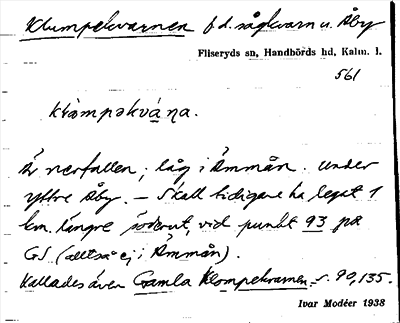 Klumpekvarnen f.d. sågkvarn u. Åby
Fliseryds sn, Handbörds hd, Kalm. l.
561
klòmpəkvá̱ṇa.
Är nerfallen; låg i Ämmån. under
yttre Åby. – Skall tidigare ha legat 1
km. längre söderut, vid punkt 93 på
GS (alltså ej i Ämmån).
Kallades även Gamla Klompekvarnen. s. 90, 135.
Ivar Modéer 1938